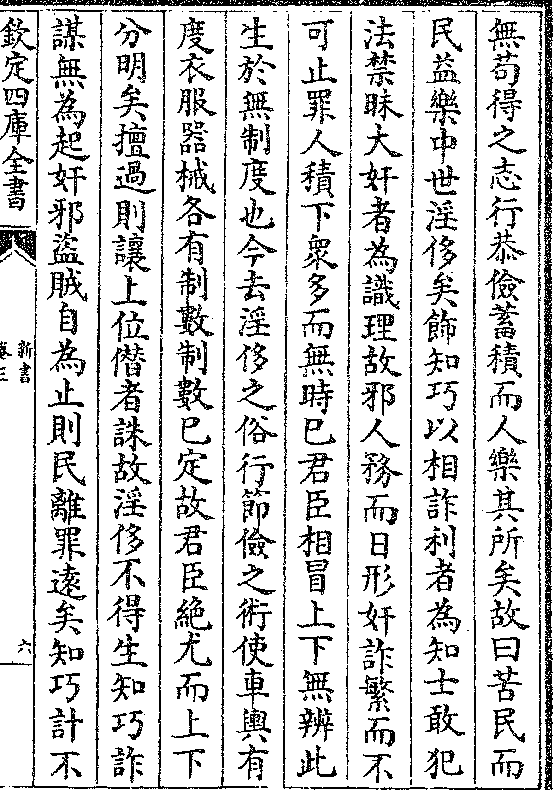 無苟得之志行恭儉蓄積而人樂其所矣故曰苦民而
民益樂中世淫侈矣飾知巧以相詐利者為知士敢犯
法禁昧大奸者為識理故邪人務而日形奸詐繁而不
可止罪人積下衆多而無時已君臣相冒上下無辨此
生於無制度也今去淫侈之俗行節儉之術使車輿有
度衣服器械各有制數制數已定故君臣絶尤而上下
分明矣擅過則讓上位僭者誅故淫侈不得生知巧詐
謀無為起奸邪盜賊自為止則民離罪遠矣知巧計不
欽定四庫全書
新書
卷三
六